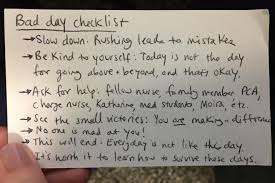 Bad day checklist
→ Slow down: Rushing leads to mistakes
→ Be Kind to yourself: Today is not the day
for going above + beyond, and that's okay.
→ Ask for help: fellow nurse, family member PCA,
charge nurse, Katharine, med students, Moira, etc.
→ See the small victories: You are making a difference
→ No one is mad at you!
→ This will end: Everyday is not like this day.
It's worth it to learn how to survive these days.